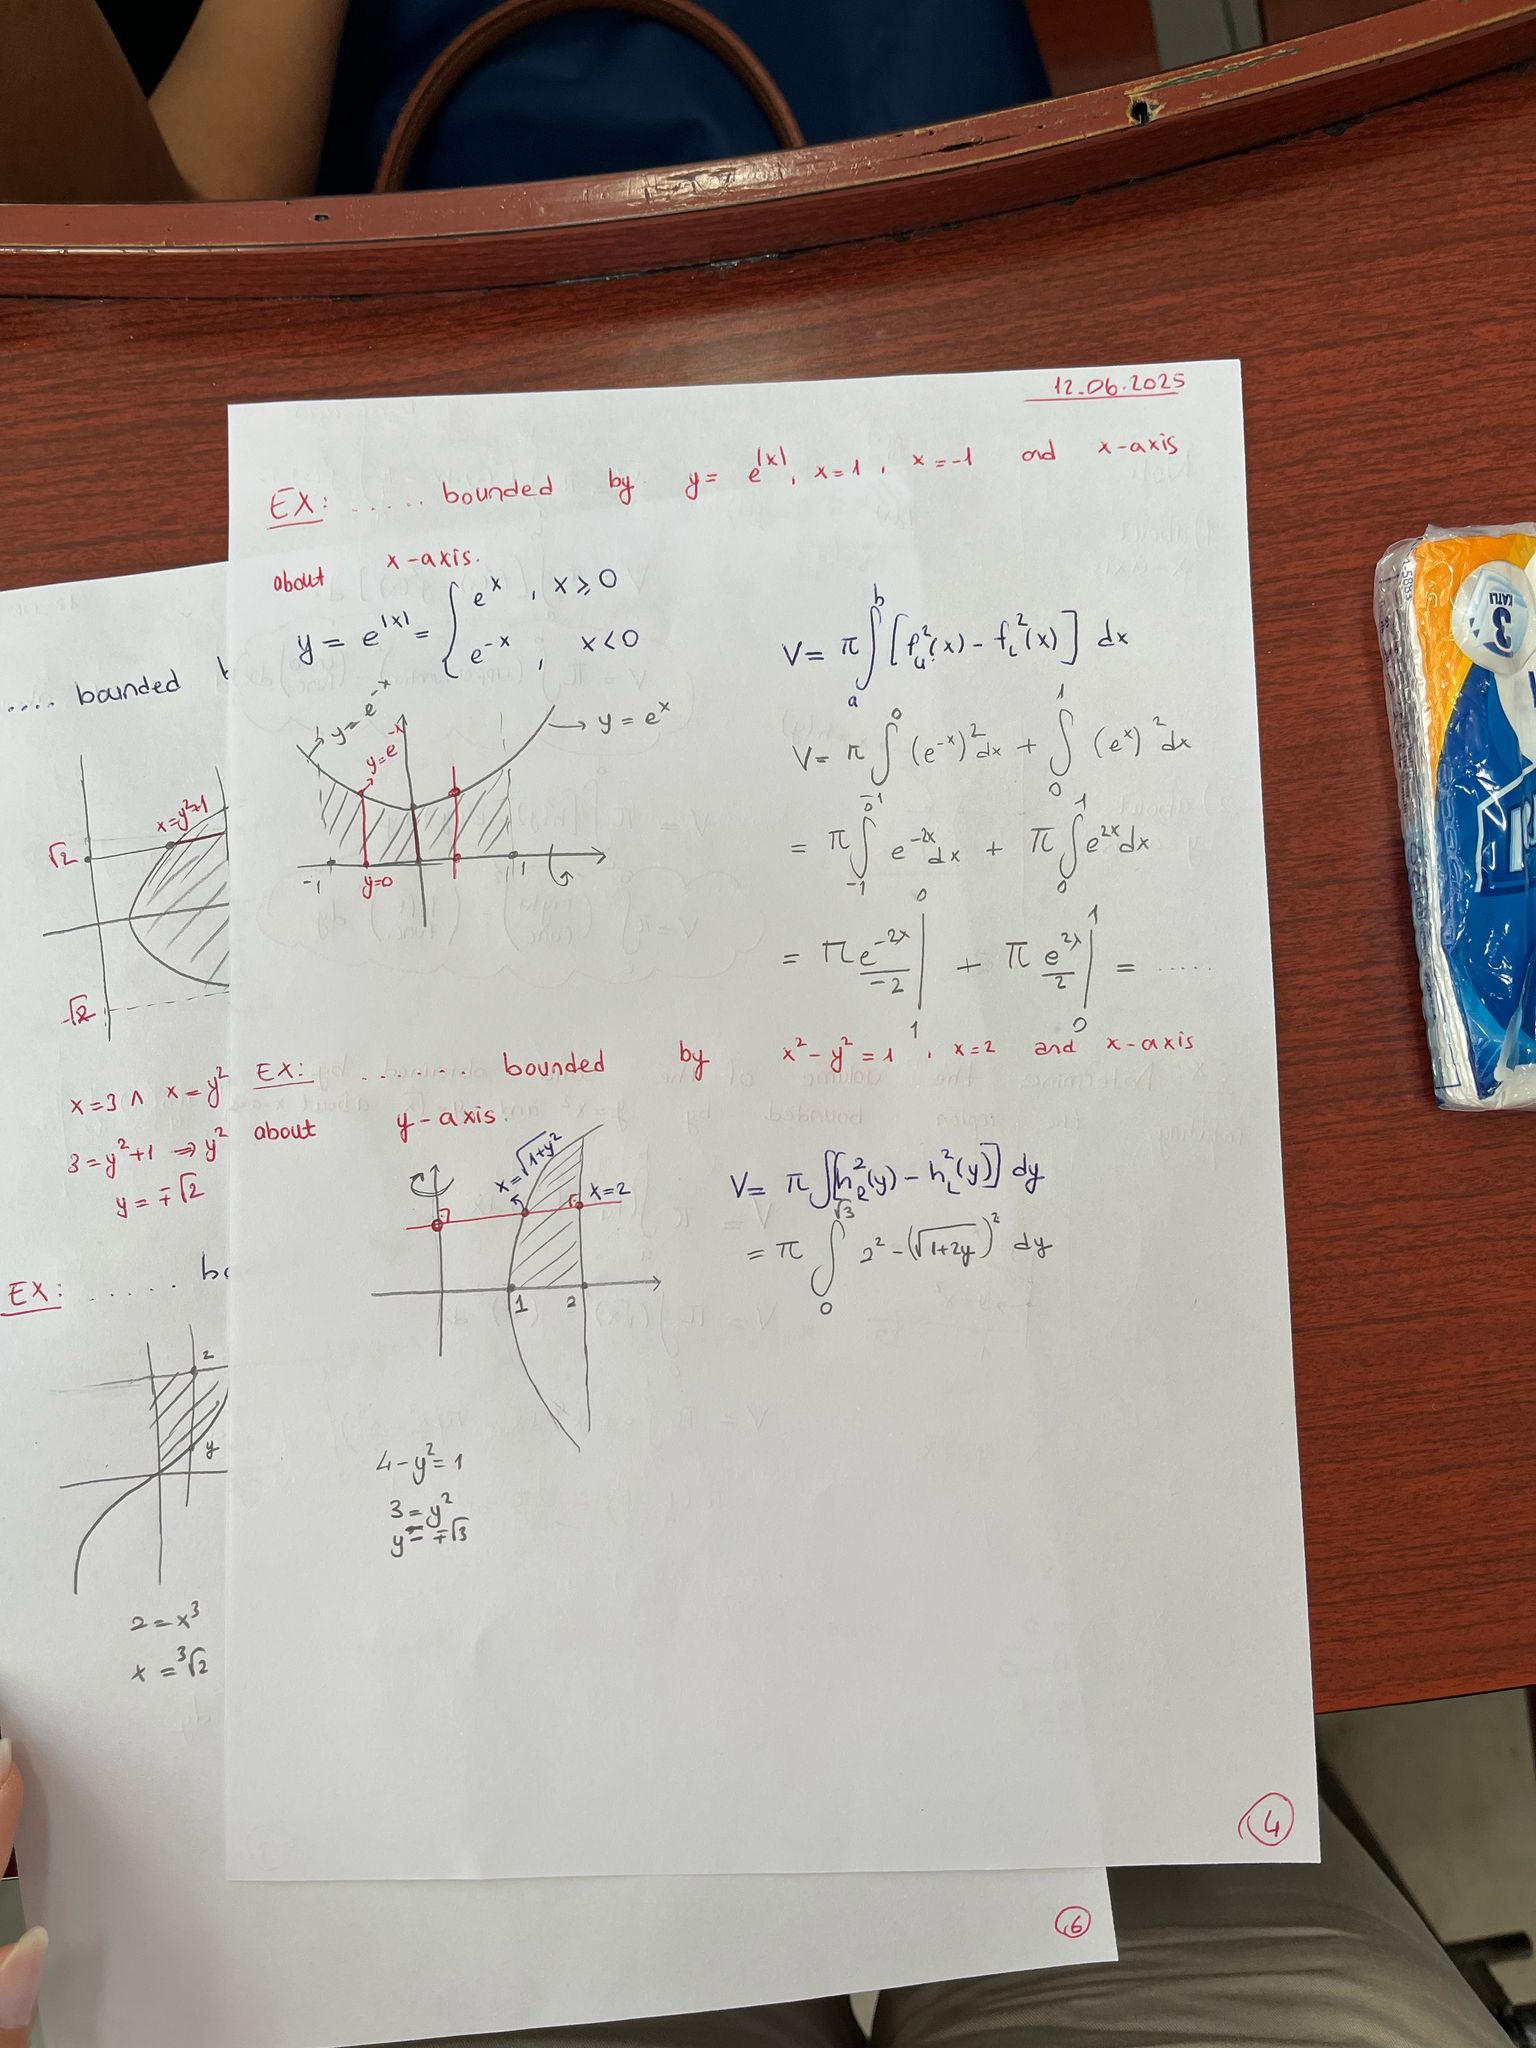 12.06.2025
EX: ..... bounded by y = e^|x|, x=1, x=-1 and x-axis
about x-axis.
y = e^|x| = { e^x, x ≥ 0
e^-x, x < 0
y = e^-x
y = e^x
y = e^-x
-1
y=0
1
V = π ∫_a^b [f_u^2(x) - f_L^2(x)] dx
V = π ∫_-1^0 (e^-x)^2 dx + ∫_0^1 (e^x)^2 dx
= π ∫_-1^0 e^-2x dx + π ∫_0^1 e^2x dx
= π e^-2x/-2 |_1^0 + π e^2x/2 |_0^1 = .....
EX: ........ bounded by x^2 - y^2 = 1, x=2 and x-axis
about y-axis.
x = √1+y^2
x=2
1
2
V = π ∫[h_R^2(y) - h_L^2(y)] dy
= π ∫_0^√3 2^2 - (√1+2y)^2 dy
4 - y^2 = 1
3 = y^2
y = ∓√3
4
.... bounded
√2
x=y^2+1
-√2
x = 3 ∧ x = y^2
3 = y^2+1 ⇒ y^2
y = ∓√2
EX: ......
2
y
2 = x^3
x = ^3√2
6
3
KATLI